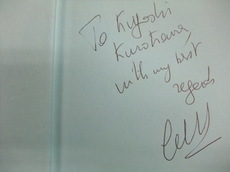 To Kiyoshi
Kurokawa,
with my best
regards